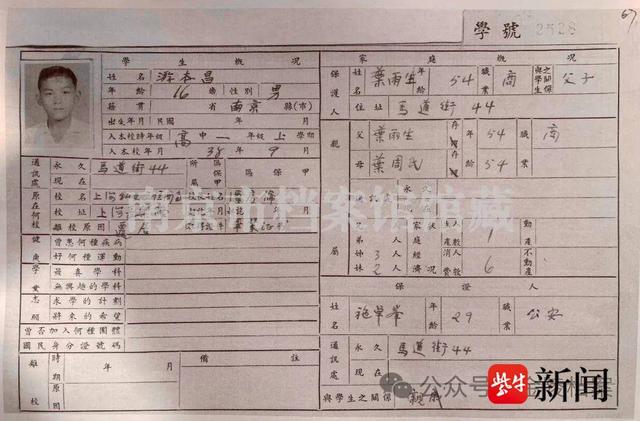 67
學號 2528
學生概況
姓名 游本昌
年齡 16 歲 性別 男
籍貫 省 南京 縣(市)
出生年月 民國 年 月
入本校時年級 高中一年級上學期
入本校年月 38年9月
通訊處 永久 馬道街44 所屬區保甲 區 保 甲
現在
原在何校 校名
校址 上
離校原因
健康 曾患何種疾病
好何種運動
學業 最喜學科
無興趣的學科
志願 求學的計劃
將來的希望
曾否加入何種團體
國民身分證號碼
離校 時期 年 月
原因
備註
家庭概況
保護人 姓名 葉雨生 年齡 54 職業 商 與學生之關係 父子
住址 馬道街44
親屬 父 葉雨生 存歿 年齡 54 職業 商
母 葉周氏 54
永久
現在
兄弟 3人
姊妹 2人
家庭經濟狀況 生產人數 1 動產
消費人數 6 不動產
保證人
姓名 年齡 29 職業 公安
通訊處 永久 馬道街44
現在
與學生之關係
南京市档案馆馆藏
公众号
紫牛新闻